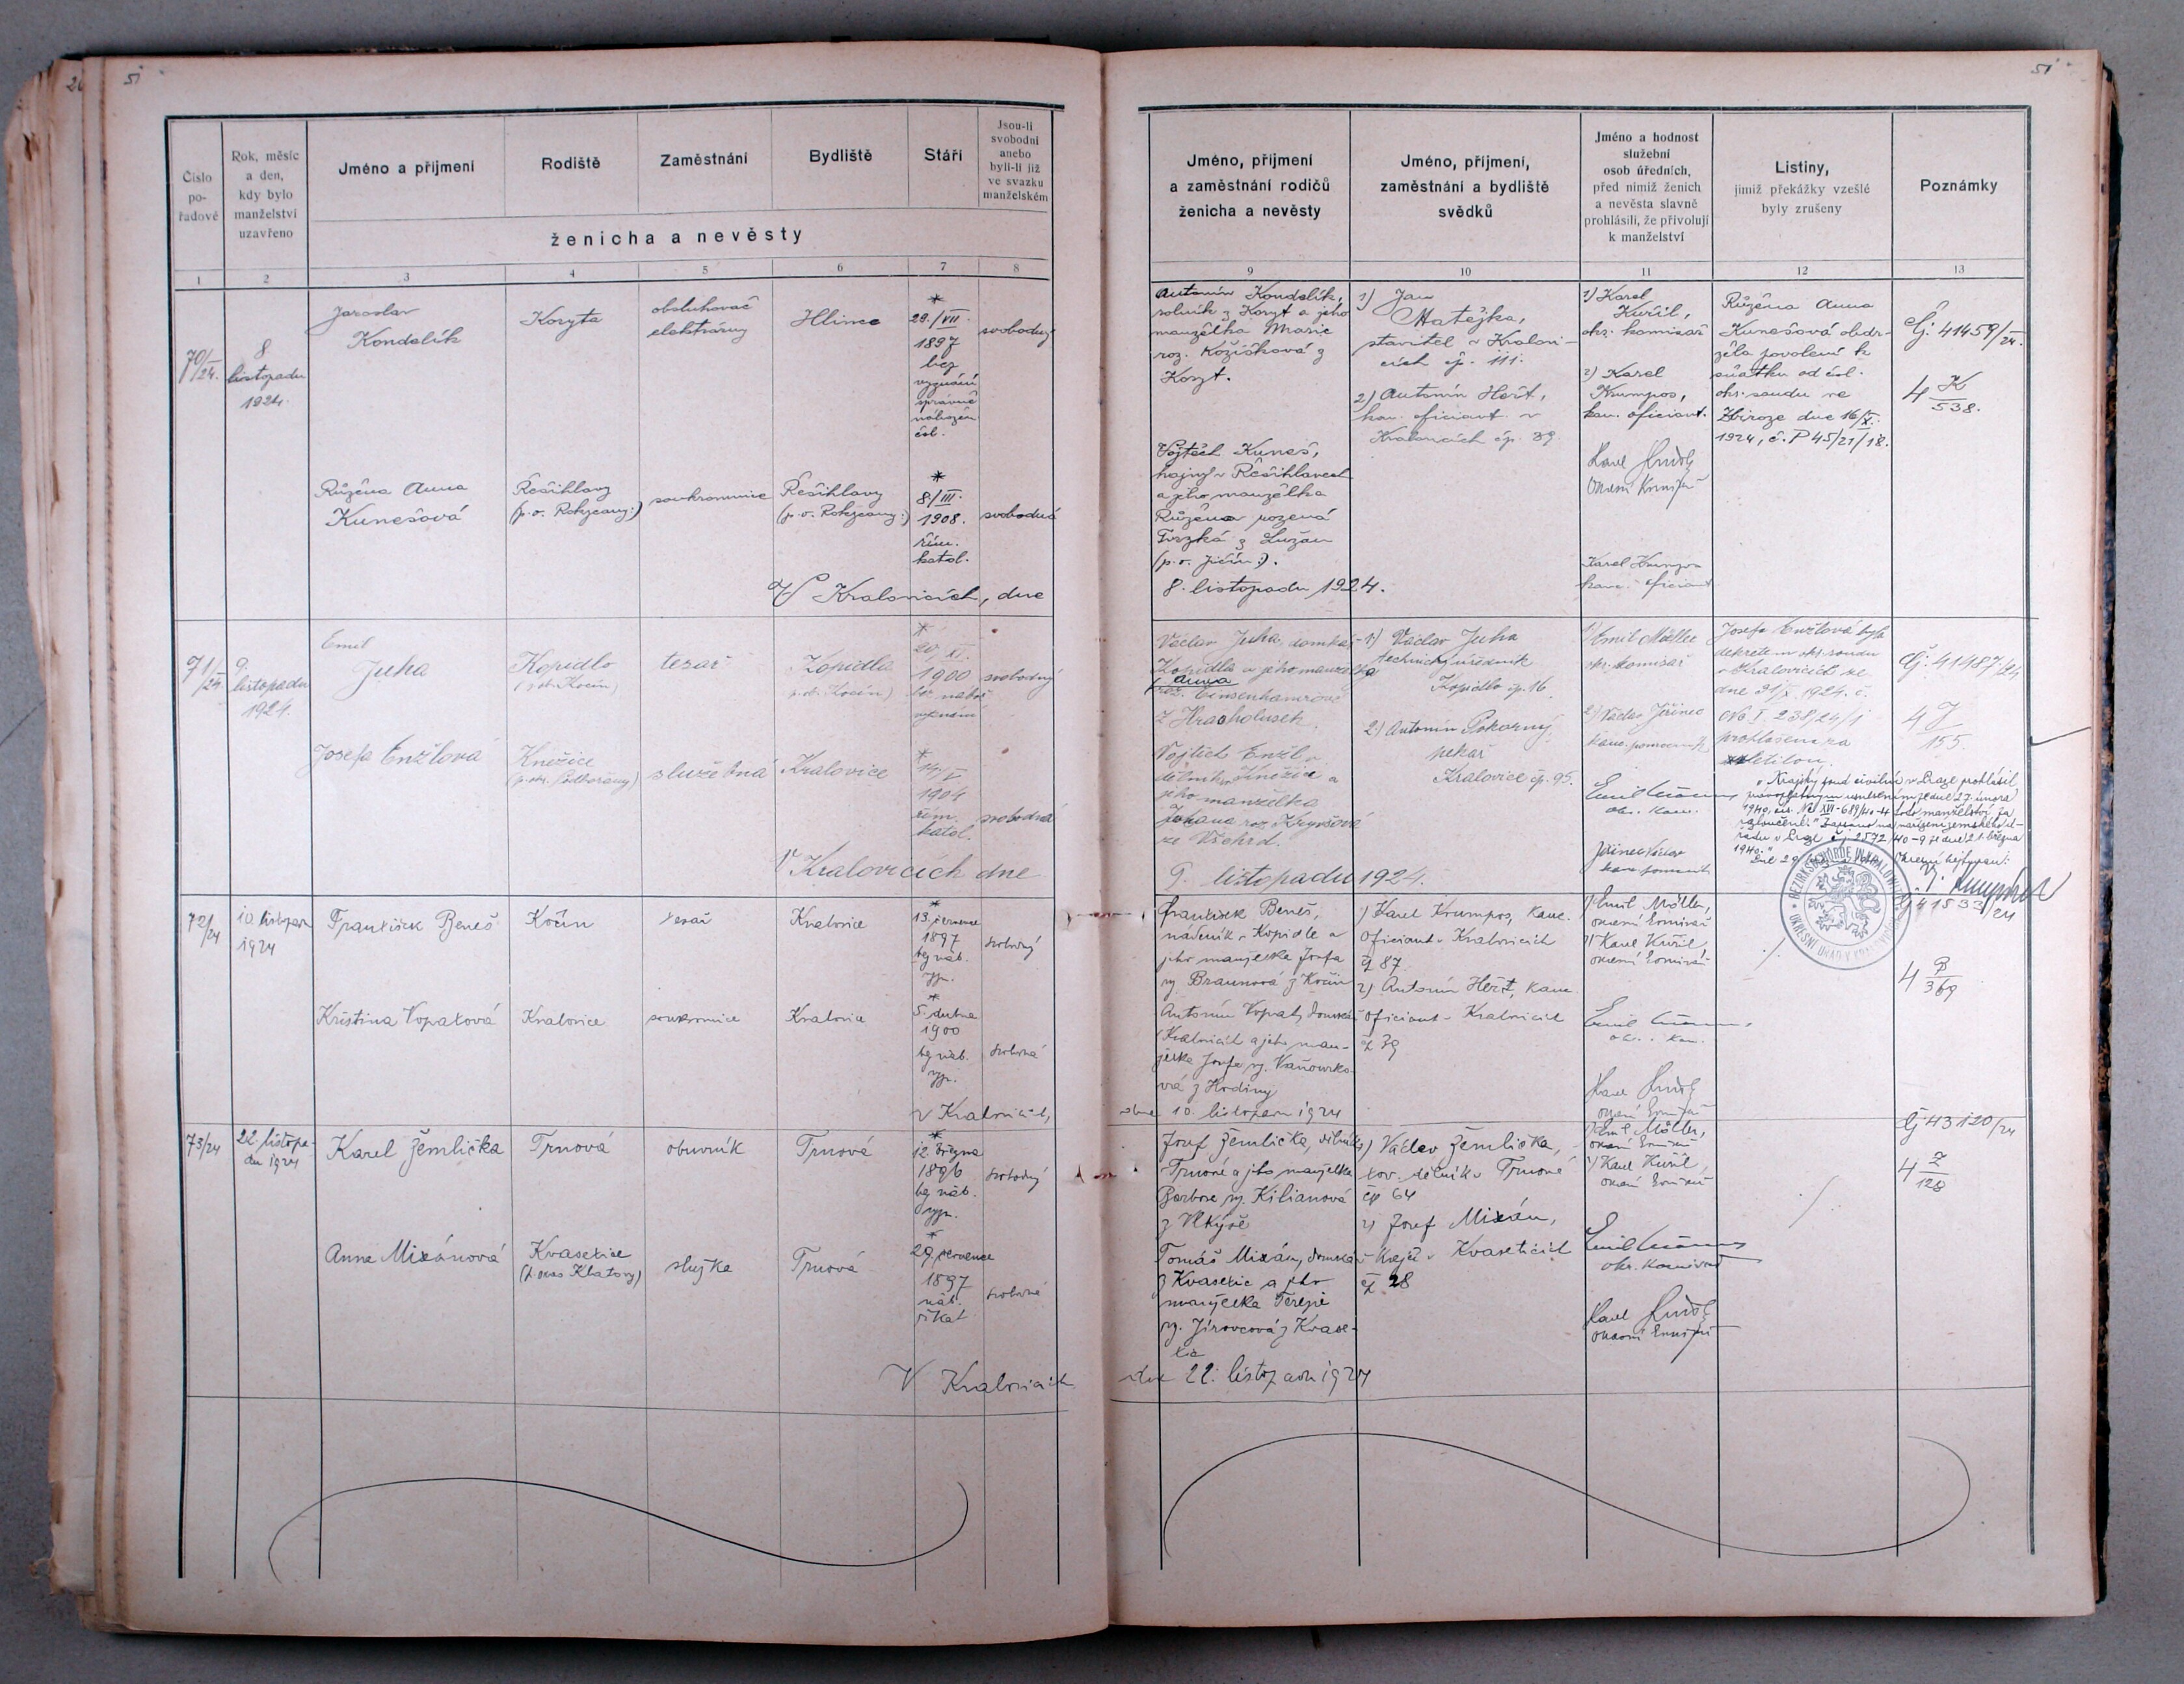 51
Číslo
po-
řadové
Rok, měsíc
a den,
kdy bylo
manželství
uzavřeno
Jméno a příjmení
Rodiště
Zaměstnání
Bydliště
Stáří
Jsou-li
svobodni
anebo
byli-li již
ve svazku
manželském
ženicha a nevěsty
1 2 3 4 5 6 7 8
70/24.
8
listopadu
1924.
Jaroslav
Kondelík
Koryta
obsluhovač
elektrárny
Hlince
*
29./VII.
1897
bez
vyznání
správně
nábožen
čsl.
svobodný
Růžena Anna
Kunešová
Řešihlavy
(p. o. Rokycany:)
soukromnice
Řešihlavy
(p. o. Rokycany:)
*
8/III.
1908.
řím.
katol.
svobodná
V Kralovicích, dne
71/24.
9.
listopadu
1924.
Emil
Juha
Kopidlo
(p. ob. Kočín)
tesař
Kopidlo
(p. ob. Kočín)
*
20/XI.
1900
bez nábož.
vyznání
svobodný
Josefa Enžlová
Kněžice
(p. okr. Podbořany)
služebná
Kralovice
*
14/V.
1904
řím.
katol.
svobodná
V Kralovicích dne
72/24
10. listopadu
1924
František Beneš
Kočín
tesař
Kralovice
*
13. července
1897
bez náb.
vyz.
svobodný
Kristina Vopatová
Kralovice
soukromnice
Kralovice
*
5. dubna
1900
bez náb.
vyz.
svobodná
v Kralovicích,
73/24
22. listopa-
du 1924
Karel Žemlička
Trnová
obuvník
Trnová
*
12. března
1896
bez náb.
vyzn.
svobodný
Anna Mixánová
Kvasetice
(p. okres Klatovy)
služka
Trnová
*
29. července
1897
náb.
řkat.
svobodná
V Kralovicích
51
Jméno, příjmení
a zaměstnání rodičů
ženicha a nevěsty
Jméno, příjmení,
zaměstnání a bydliště
svědků
Jméno a hodnost
služební
osob úředních,
před nimiž ženich
a nevěsta slavně
prohlásili, že přivolují
k manželství
Listiny,
jimiž překážky vzešlé
byly zrušeny
Poznámky
9 10 11 12 13
Antonín Kondelík,
rolník z Koryt a jeho
manželka Marie
roz. Kožíšková z
Koryt.
1) Jan
Matějka,
stavitel v Kralovi-
cích čp. 111.
2) Antonín Heřt,
kan. oficiant v
Kralovicích čp. 39.
1) Karel
Kuřil,
okr. komisař
2) Karel
Krumpos,
kan. oficiant.
Růžena Anna
Kunešová obdr-
žela povolení k
sňatku od čsl.
okr. soudu ve
Zbiroze dne 16/X.
1924, č. P 45/21/18.
Čj. 41459/24.
4 K/538.
Vojtěch Kuneš,
hajný v Řešihlavech
a jeho manželka
Růžena rozená
Turzká z Lužan
(p. o. Jičín:).
8. listopadu 1924.
Karel Krumpos
kanc. oficiant
Václav Juha, domkář
Kopidla a jeho manželka
Anna
roz.
z Hracholusek.
1) Václav Juha
technický úředník
Kopidlo čp. 16.
2) Antonín Pokorný,
pekař
Kralovice čp. 95.
1) Emil Möller
okr. komisař
2) Václav Jeřinec
kanc. pomocník
Josefa Enžlová byla
dekretem okr. soudu
v Kralovicích ze
dne 31/X. 1924. č.
Nc I. 238/24/1
prohlášena za
zletilou.
Čj. 41487/24
4 J/155
Vojtěch Enžl
dělník Kněžice a
jeho manželka
Johana roz.
ze Všehrd.
9. listopadu 1924.
okr. kom.
Jeřinec Václav
kanc. pomocník
„Krajský soud civilní v Praze prohlásil
pravoplatným usnesením ze dne 27. února
1940, čís. Nc XVI-689/40-4 toto manželství za
rozloučené." Zapsáno na nařízení zemského ú-
řadu v Praze čj. 2572/40-9 ze dne 21. března
1940."
Okresní hejtman:
BEZIRKSBEHÖRDE IN KRALOWITZ
OKRESNÍ ÚŘAD V KRALOVICÍCH
František Beneš,
nádeník v Kopidle a
jeho manželka Josefa
roz. Braunová z Kočín
1) Karel Krumpos, kanc.
oficiant v Kralovicích
čp 87
2) Antonín Heřt, kanc.
oficiant v Kralovicích
čp 39
1) Emil Möller,
okresní komisař
2) Karel Kuřil,
okresní komisař
Čj 41533/24
4 B/369
Antonín Vopat, domkář
v Kralovicích a jeho man-
želka Josefa roz. Vaňourko-
vá z Hodiny
dne 10. listopadu 1924
Josef Žemlička, dělník
v Trnové a jeho manželka
Barbora roz. Kilianová
z Vlkýše
1) Václav Žemlička,
tov. dělník v Trnové
čp 64
2) Josef Mixán,
krejčí v Kvaseticích
čp 28
1) Emil Möller,
okresní komisař
2) Karel Kuřil,
okresní komisař
Čj 43120/24
4 Z/128
Tomáš Mixán, domkář
z Kvasetic a jeho
manželka Terezie
roz. Jírovcová z Kvase-
tic
okr. komisař
dne 22. listopadu 1924